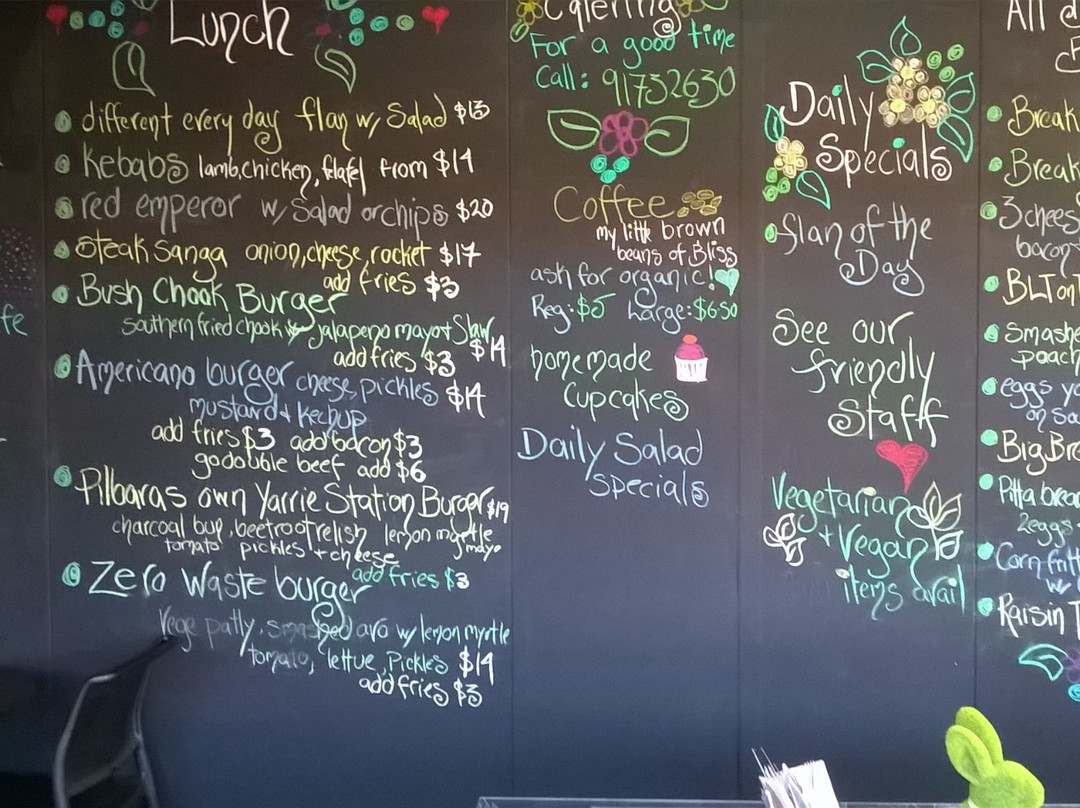 Lunch
different every day flan w/ Salad $13
kebabs lamb, chicken, flafel from $14
red emperor w/ Salad or chips $20
Steak Sanga onion, cheese, rocket $17
add fries $3
Bush Chook Burger
southern fried chook w jalapeno mayo + Slaw
$14
add fries $3
Americano burger cheese, pickles $14
mustard + kechup
add fries $3 add bacon $3
go double beef add $6
Pilbaras own Yarrie Station Burger $19
charcoal bun, beetroot relish lemon myrtle
tomato pickles + cheese mayo
Zero Waste burger add fries $3
Vege patty, smashed avo w/ lemon myrtle
tomato, lettue, Pickles $14
add fries $3
Catering
For a good time
Call: 91732630
Coffee
my little brown
beans of Bliss
ask for organic!
Reg: $5 Large: $6.50
homemade
Cupcakes
Daily Salad
specials
Daily
Specials
flan of the
Day
See our
friendly
Staff
Vegetarian
+ Vegan
items avail
fe
All d
Break
Break
3 chees
bacon
BLT on
Smashe
poach
eggs yo
on Sa
Big Bre
Pitta brea
2 eggs
Corn fritt
w/
Raisin T